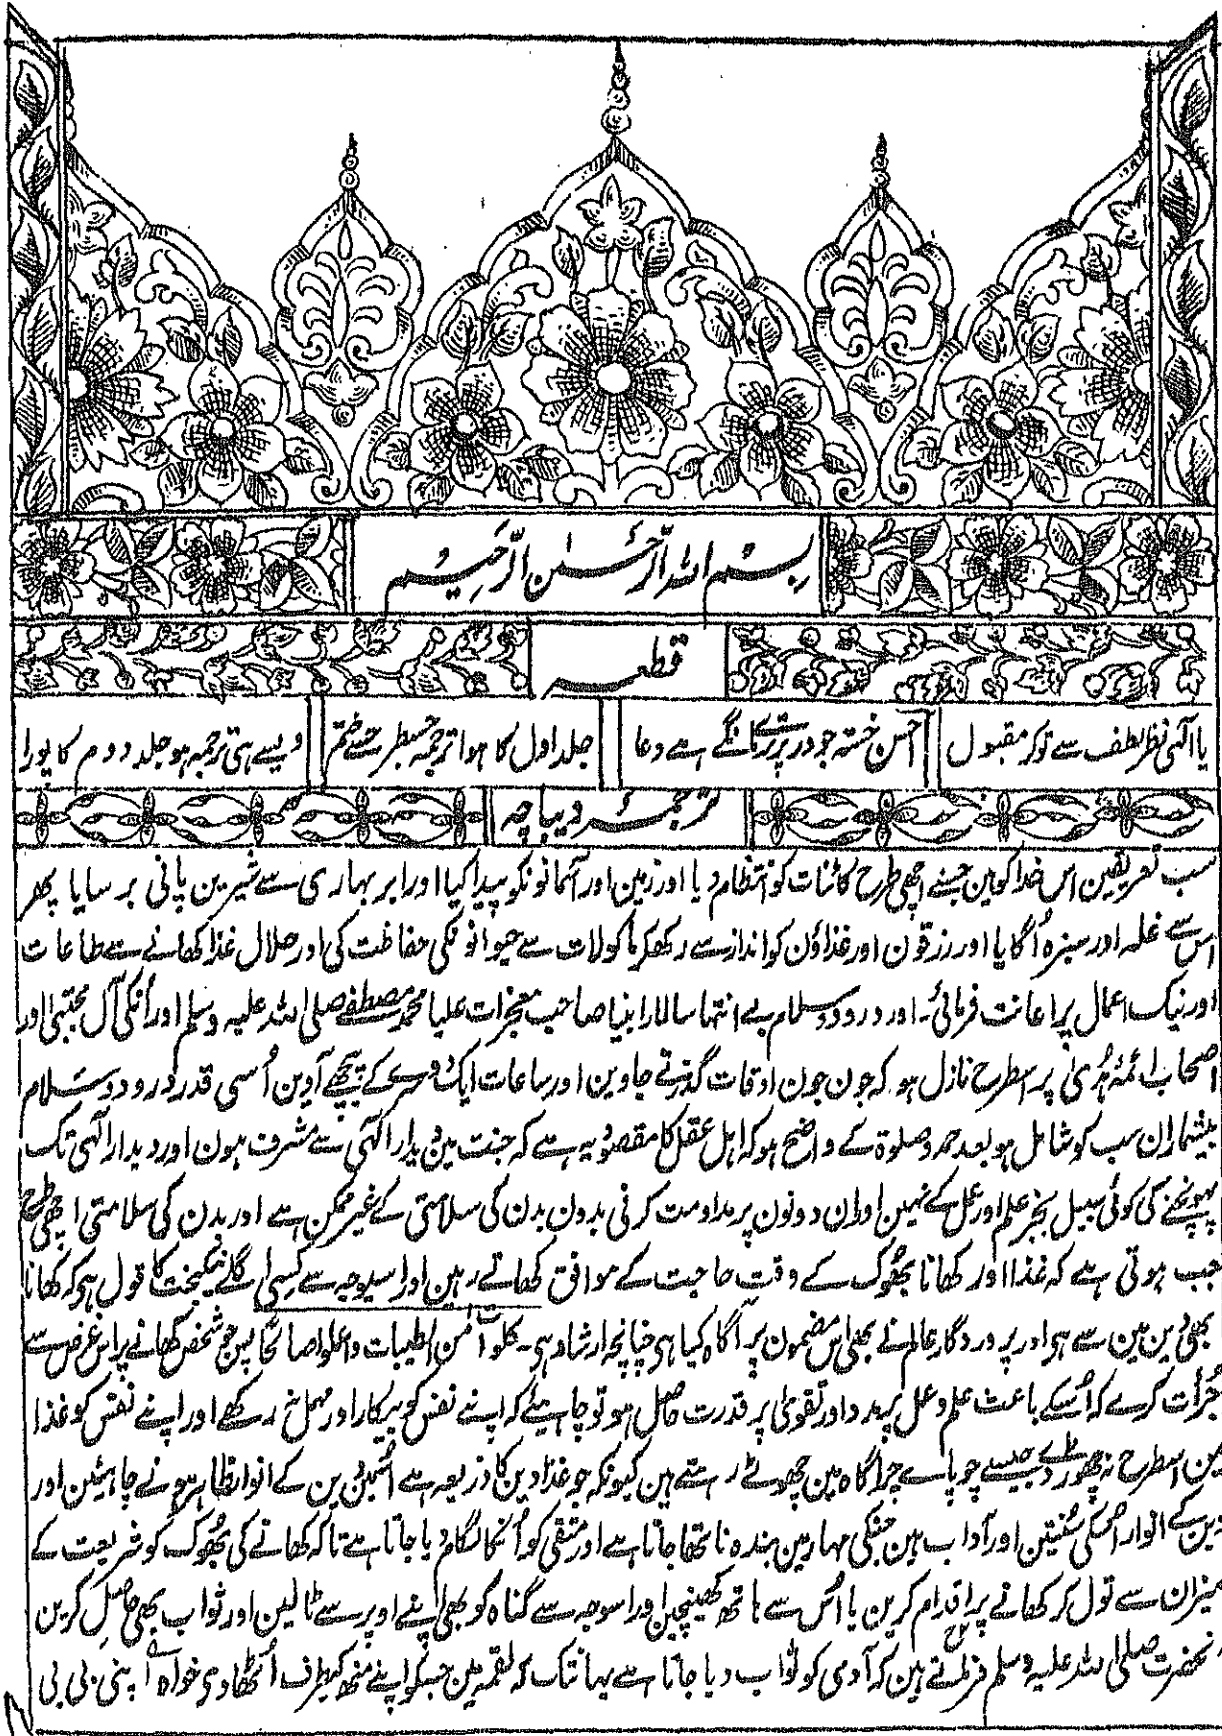 بسم اللہ الرحمٰن الرحیم
قطعہ
یا الٰہی نظر لطف سے تو کر مقبول احسن خستہ جو در پر ترے مانگے ہے دعا جلد اول کا ہوا ترجمہ جسطرحسے ختم ویسے ہی ترجمہ ہو جلد دوم کا پورا
ترجمۂ دیباچہ
سب تعریفین اس خدا کو ہین جسنے اچھی طرح کائنات کو انتظام دیا اور زمین اور آسمانونکو پیدا کیا اور ابر بہاری سے شیرین پانی برسایا پھر
اس سے غلہ اور سبزہ اُگایا اور رزقون اور غذاؤن کو اندازسے رکھکر ماکولات سے حیوانونکی حفاظت کی اور حلال غذا کھانے سے طاعات
اور نیک اعمال پر اعانت فرمائی۔ اور درود و سلام بے انتہا سالار انبیا صاحب معجزات علیا محمد مصطفے صلی اللہ علیہ وسلم اور اُنکی آل مجتبیٰ اور
اصحاب ائمۂ ہُدیٰ پر اسطرح نازل ہو کہ جون جون اوقات گذرتے جاوین اور ساعات ایک دوسرے کے پیچھے آوین اُسی قدر درود و سلام
بیشمار ان سب کو شامل ہو بعد حمد و صلوۃ کے واضح ہو کہ اہل عقل کا مقصود یہ ہے کہ جنت مین دیدار الٰہی سے مشرف ہون اور دیدار الٰہی تک
پہونچنے کی کوئی سبیل بجز علم اور عمل کے نہین اور ان دونون پر مداومت کرنی بدون بدن کی سلامتی کے غیر ممکن ہے اور بدن کی سلامتی اچھی طرح
جب ہوتی ہے کہ غذا اور کھانا بھوک کے وقت حاجت کے موافق کھاتے رہین اور اسیوجہ سے کسی اگلے نیکبخت کا قول ہی کہ کھانا
بھی دین مین سے ہی اور پروردگار عالم نے بھی اس مضمون پر آگاہ کیا ہی چنانچہ ارشاد ہی۔ کلوا من الطیبات واعملوا صالحا پس جو شخص کھانے پر اس غرض سے
جرأت کرے کہ اُسکے باعث علم و عمل پر مدد اور تقویٰ پر قدرت حاصل ہو تو چاہیئے کہ اپنے نفس کو بیکار اور مہمل نہ رکھے اور اپنے نفس کو غذا
مین اسطرح نہ چھوڑ دے جیسے چوپاے چراگاہ مین چھوٹے رہتے ہین کیونکہ جو غذا دین کا ذریعہ ہے اُسمین دین کے انوار ظاہر ہونے چاہیئین اور
دین کے انوار اُسکی سُنتین اور آداب ہین جنکی مہار مین بندہ ناتھا جاتا ہے اور متقی کو اُنکا لگام دیا جاتا ہے تاکہ کھانے کی بھوک کو شریعت کے
میزان سے تول کر کھانے پر اقدام کرین یا اُس سے ہاتھ کھینچین اور اسوجہ سے گناہ کو بھی اپنے اوپر سے ٹالین اور ثواب بھی حاصل کرین
آنحضرت صلی اللہ علیہ وسلم فرماتے ہین کہ آدمی کو ثواب دیا جاتا ہے یہانتک کہ لقمہ مین جسکو اپنے منھ کیطرف اُٹھا دی خواہ اپنی بی بی